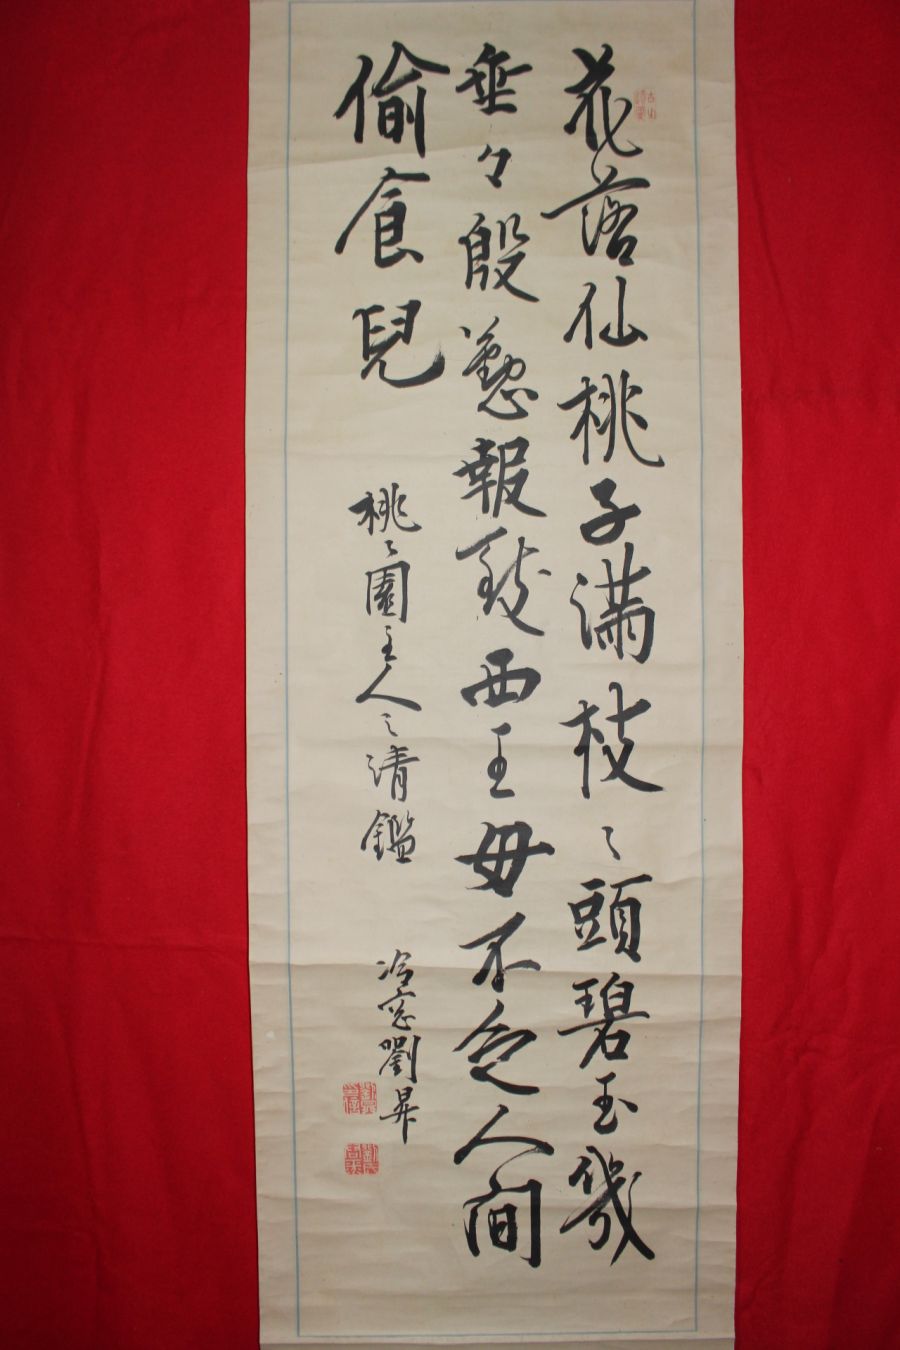 花落仙桃子滿枝〻頭碧玉幾
垂々殷懃報致西王母不令人間
偷食兒
桃〻園主人之清鑑
冷窓劉昇